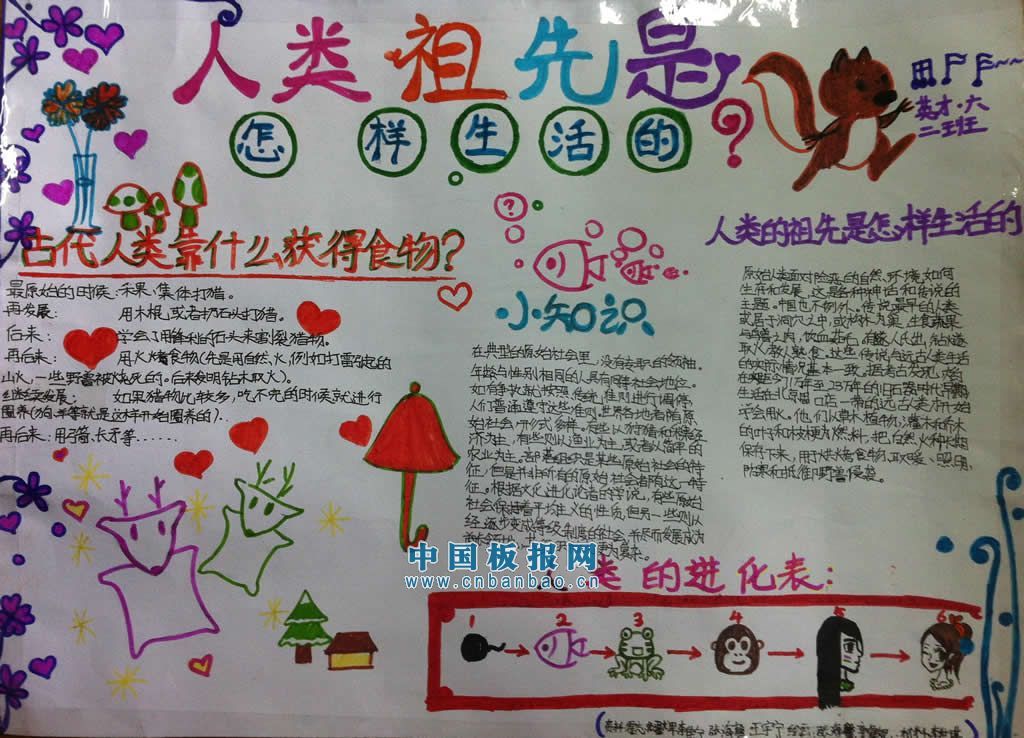 人类祖先是
怎样生活的？
英才·六
二班
古代人类靠什么获得食物？
最原始的时候：采果、集体打猎。
再发展： 用木棍，或者扔石头打猎。
后来： 学会了用锋利的石头来割裂猎物。
再后来： 用火烤食物（先是用自然火，例如打雷引起的
山火，一些野兽被火烧死的。后来发明钻木取火）。
继续发展： 如果猎物比较多，吃不完的时候就进行
圈养（狗、羊等就是这样开始圈养的）…
再后来：弓箭、长矛等……
?
小知识
在典型的原始社会里，没有专职的领袖。
年龄与性别相同的人具有同等社会地位。
如有争执就按照传统准则进行调停，
人们普遍遵守这些准则。世界各地者的原
始社会形式多样。有些以狩猎和
济为主，有些则从渔业为主，或者以简单的
农业为主。部落组织是某些原始社会的特
征，但是并非所有的原始社会都有这一特
征。根据文化进化论者的学说，有些原始
社会保持着平均主义的性质，但另一些则从
人类的祖先是怎样生活的
原始人类面对险恶的自然环境，如何
生存和发展，这是各种神话和传说的
主题。中国也不例外。传说最早的人类
或居于洞穴之中，或构木为巢，生食蔬果
取火，教人熟食。这些传说与远古人类生活
的实际情况基本一致。据考古发现，
生活在北京周口店一带的远古人类开始
学会用火。他们从草木植物，灌木和乔木
的叶和枝梗为燃料，把自然火种来回
保存下来，用于烧烤食物、取暖、照明、
防寒和抵御野兽侵袭。
中国板报网
www.cnbanbao.cn
类的进化表：
1 2 3 4 5 6